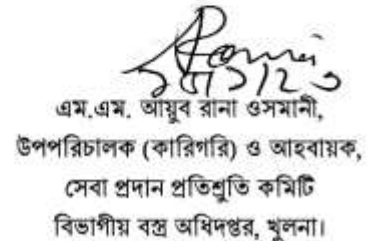 এম.এম. আয়ুব রানা ওসমানী,
উপপরিচালক (কারিগরি) ও আহবায়ক,
সেবা প্রদান প্রতিশ্রুতি কমিটি
বিভাগীয় বস্ত্র অধিদপ্তর, খুলনা।